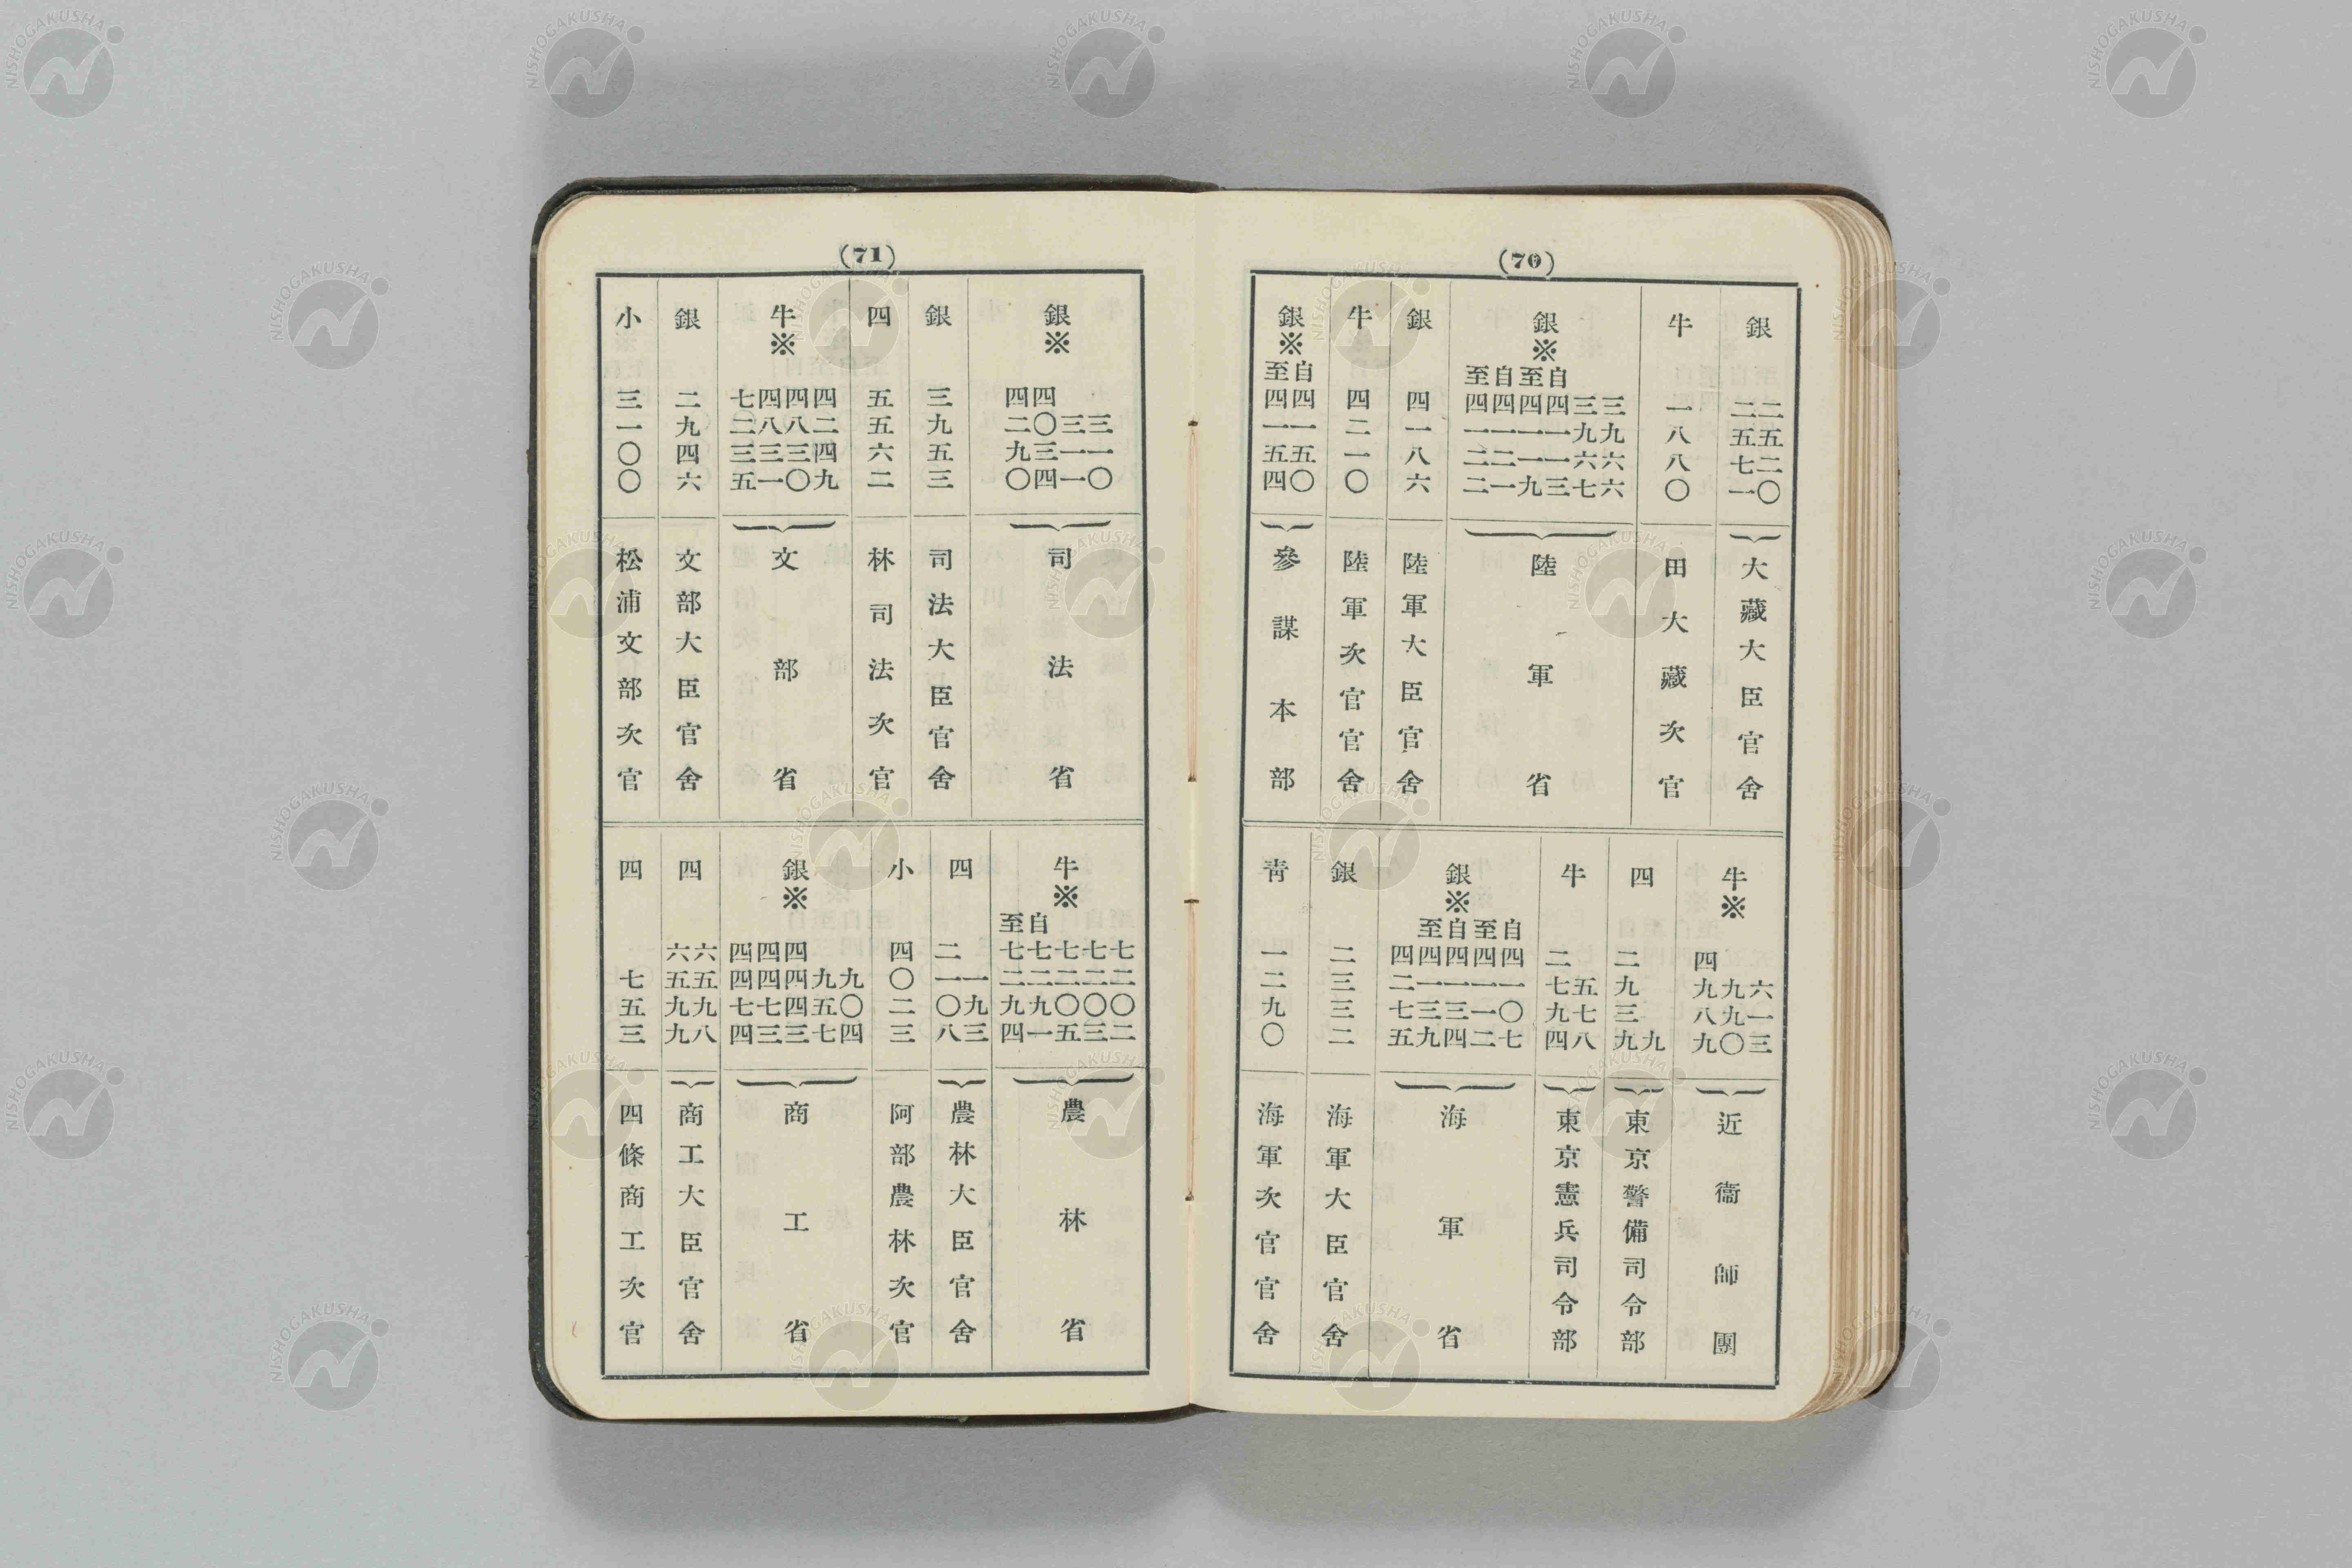 (70)
銀
二五二〇
二五七一
大藏大臣官舍
牛
一八八〇
田大藏次官
銀※
三九六六
三九六七
自四一一三
至四一一九
自四一二一
至四一二二
陸軍省
銀
四一八六
陸軍大臣官舍
牛
四二一〇
陸軍次官官舍
銀※
自四一五〇
至四一五四
參謀本部
牛※
六一三
九九〇
四九八九
近衞師團
四
九
二九三九
東京警備司令部
牛
五七八
二七九四
東京憲兵司令部
銀※
自四一〇七
至四一一二
自四一三四
至四一三九
四二七五
海軍省
銀
二三三二
海軍大臣官舍
靑
一二九〇
海軍次官官舍
(71)
銀※
三一〇
三一一
四〇三四
四二九〇
司法省
銀
三九五三
司法大臣官舍
四
五五六二
林司法次官
牛※
四二四九
四八三〇
四八三一
七二三五
文部省
銀
二九四六
文部大臣官舍
小
三一〇〇
松浦文部次官
牛※
七二〇二
七二〇三
七二〇五
自七二九一
至七二九四
農林省
四
一九三
二一〇八
農林大臣官舍
小
四〇二三
阿部農林次官
銀※
九〇四
九五七
四四四三
四四七三
四四七四
商工省
四
六五九八
六五九九
商工大臣官舍
四
七五三
四條商工次官
NISHOGAKUSHA